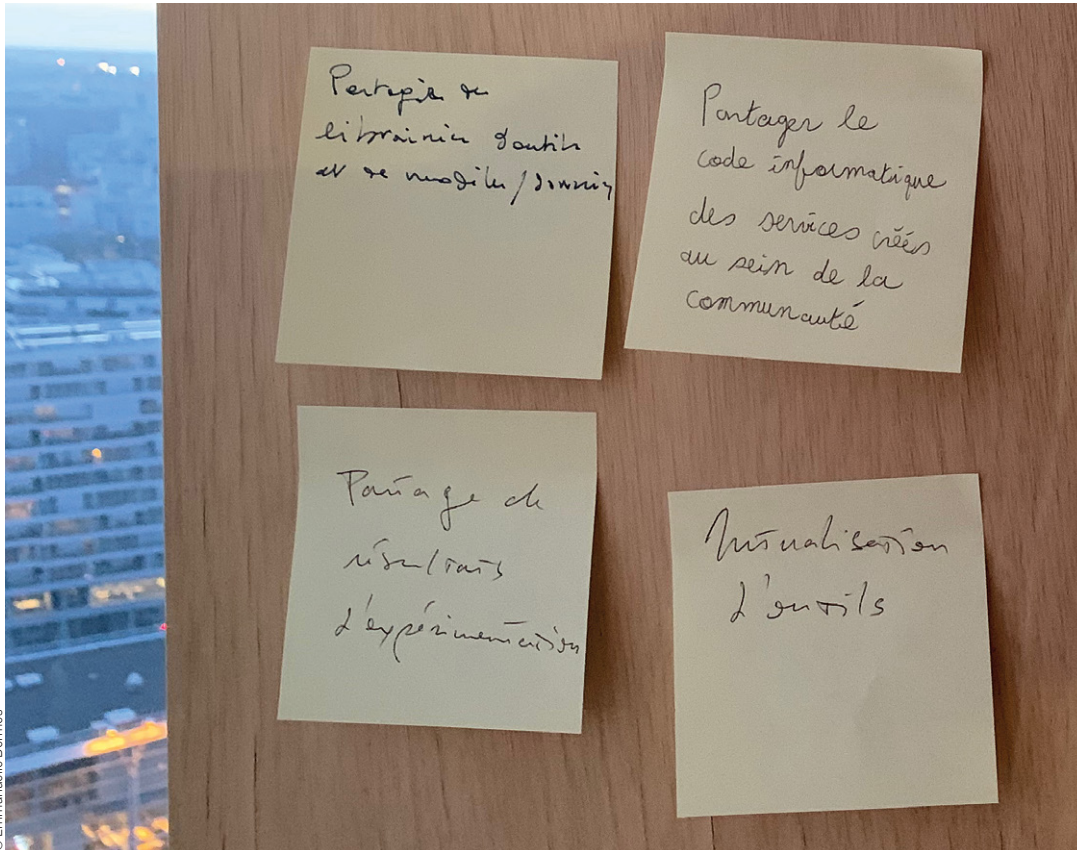 Partager des
librairies d'outils
et de modèles / données
Partager le
code informatique
des services créés
au sein de la
communauté
Partage de
résultats
d'expérimentation
Mutualisation
d'outils